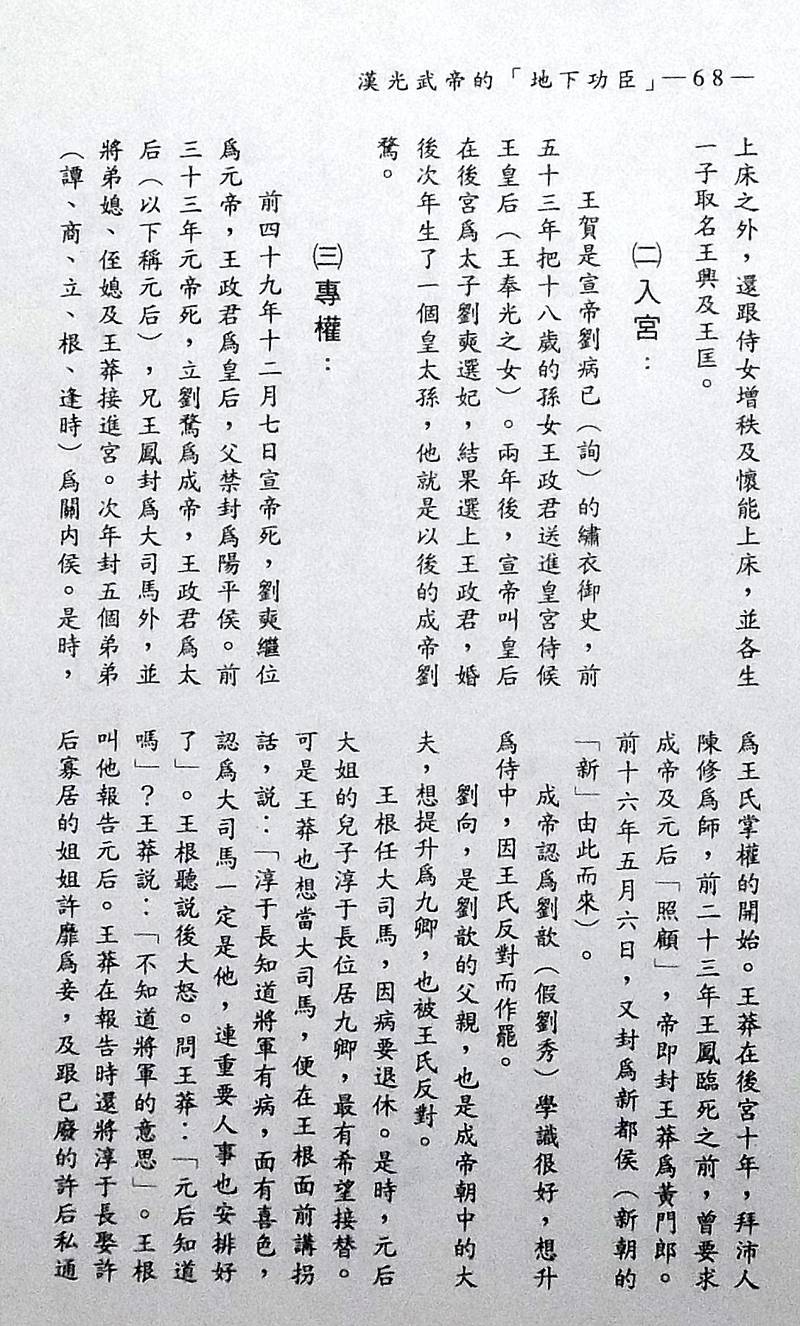 漢光武帝的「地下功臣」—68—
上床之外，還跟侍女增秩及懷能上床，並各生
一子取名王興及王匡。
㈡入宮：
王賀是宣帝劉病已（詢）的繡衣御史，前
五十三年把十八歲的孫女王政君送進皇宮侍候
王皇后（王奉光之女）。兩年後，宣帝叫皇后
在後宮爲太子劉奭選妃，結果選上王政君，婚
後次年生了一個皇太孫，他就是以後的成帝劉
驁。
㈢專權：
前四十九年十二月七日宣帝死，劉奭繼位
爲元帝，王政君爲皇后，父禁封爲陽平侯。前
三十三年元帝死，立劉驁爲成帝，王政君爲太
后（以下稱元后），兄王鳳封爲大司馬外，並
將弟媳、侄媳及王莽接進宮。次年封五個弟弟
（譚、商、立、根、逢時）爲關内侯。是時，
爲王氏掌權的開始。王莽在後宮十年，拜沛人
陳修爲師，前二十三年王鳳臨死之前，曾要求
成帝及元后「照顧」，帝即封王莽爲黃門郎。
前十六年五月六日，又封爲新都侯（新朝的
「新」由此而來）。
成帝認爲劉歆（假劉秀）學識很好，想升
爲侍中，因王氏反對而作罷。
劉向，是劉歆的父親，也是成帝朝中的大
夫，想提升爲九卿，也被王氏反對。
王根任大司馬，因病要退休。是時，元后
大姐的兒子淳于長位居九卿，最有希望接替。
可是王莽也想當大司馬，便在王根面前講拐
話，説：「淳于長知道將軍有病，面有喜色，
認爲大司馬一定是他，連重要人事也安排好
了」。王根聽説後大怒。問王莽：「元后知道
嗎」？王莽説：「不知道將軍的意思」。王根
叫他報告元后。王莽在報告時還將淳于長娶許
后寡居的姐姐許靡爲妾，及跟已廢的許后私通